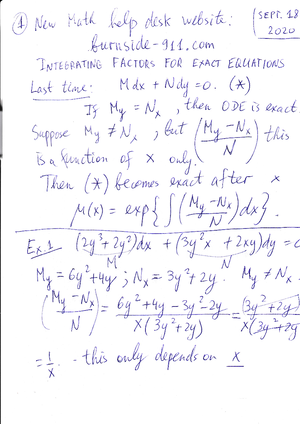 ① New Math help desk website: SEPT. 18
burnside-911.com 2020
INTEGRATING FACTORS FOR EXACT EQUATIONS
Last time: Mdx + Ndy = 0. (*)
If My = Nx, then ODE is exact.
Suppose My ≠ Nx, but ((My - Nx)/N) this
is a function of x only.
Then (*) becomes exact after x
μ(x) = exp{∫((My - Nx)/N)dx}.
Ex.1 (2y³+2y²)dx + (3y²x + 2xy)dy = 0
M N
My = 6y²+4y; Nx = 3y²+2y. My ≠ Nx.
((My - Nx)/N) = (6y²+4y-3y²-2y)/(x(3y²+2y)) = (3y²+2y)/(x(3y²+2y
= 1/x. - this only depends on x